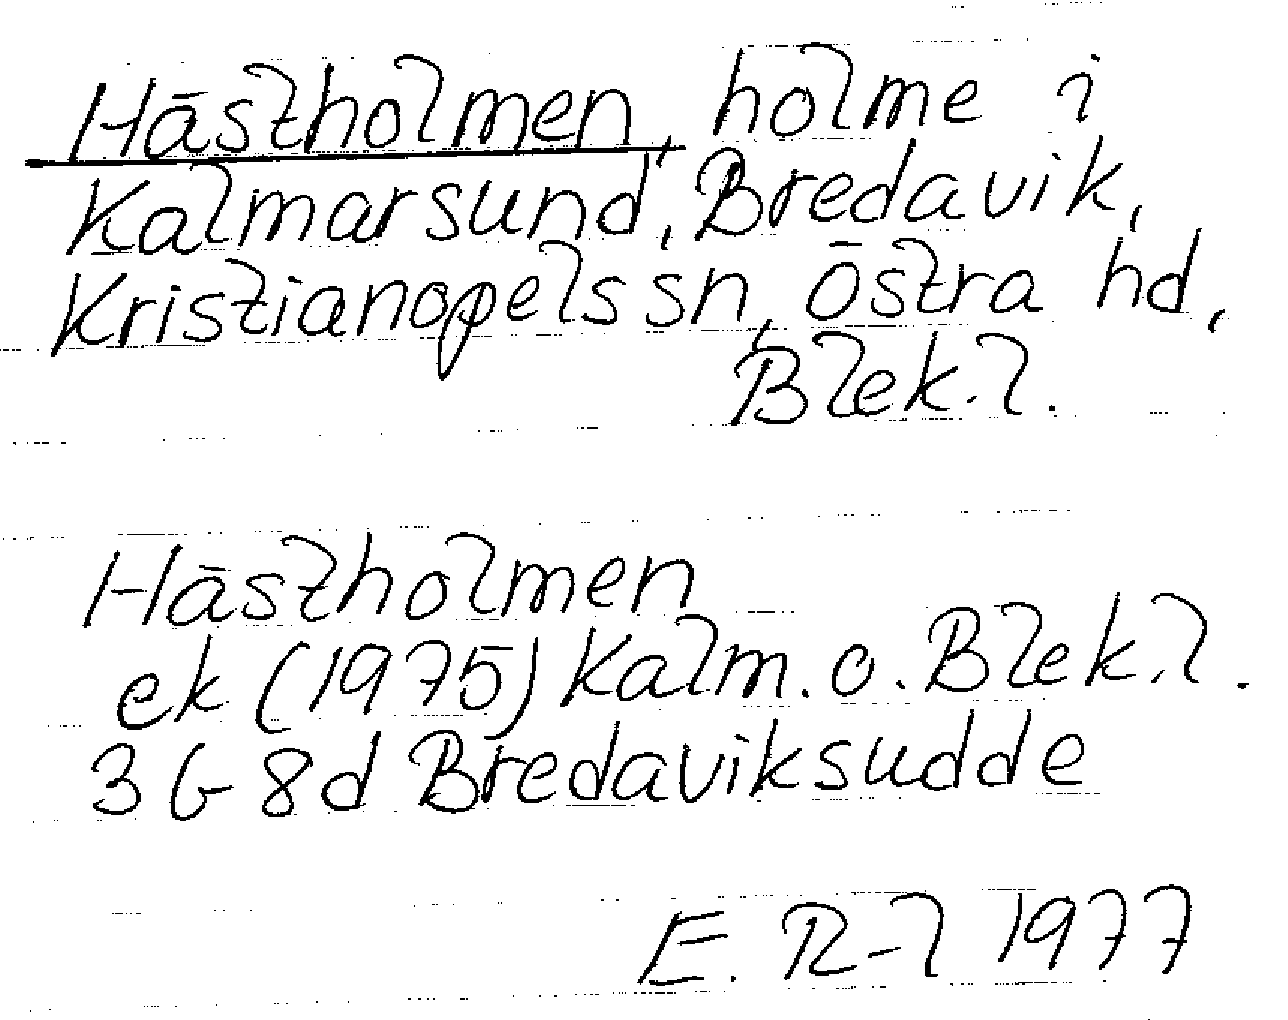 Hästholmen, holme i
Kalmarsund, Bredavik,
Kristianopels sn, Östra hd,
Blek. l.
Hästholmen
ek (1975) Kalm. o. Blek. l.
3G 8d Bredaviksudde
E. R-l 1977